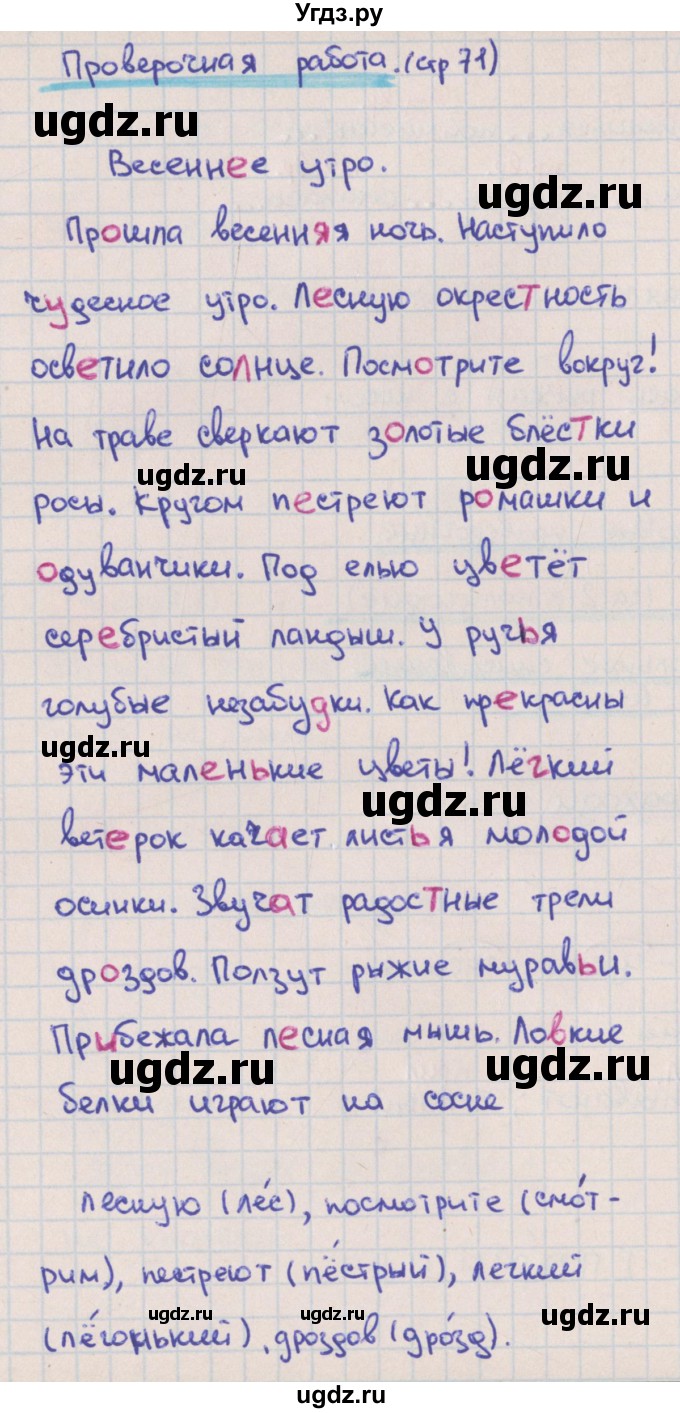 Угдз.ру
Проверочная работа. (стр 71)
ugdz.ru
Весеннее утро.
ugdz.ru
Прошла весенняя ночь. Наступило
чудесное утро. Лесную окрестность
осветило солнце. Посмотрите вокруг!
На траве сверкают золотые блёстки
ugdz.ru ugdz.ru
росы. Кругом пестреют ромашки и
одуванчики. Под елью цветёт
серебристый ландыш. У ручья
голубые незабудки. Как прекрасны
ugdz.ru
эти маленькие цветы! Лёгкий
ugdz.ru
ветерок качает листья молодой
осинки. Звучат радостные трели
дроздов. Ползут рыжие муравьи.
Прибежала лесная мышь. Ловкие
ugdz.ru ugdz.ru
белки играют на сосне
лесную (ле́с), посмотрите (смо́т-
рим), пестреют (пёстрый), легкий
ugdz.ru ugdz.ru
(лёгонький), дроздов (дро́зд).
ugdz.ru